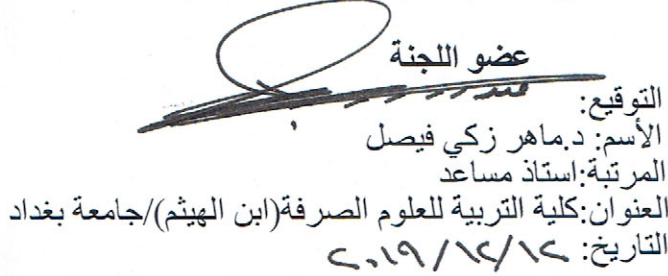 عضو اللجنة
التوقيع:
الأسم: د.ماهر زكي فيصل
المرتبة:استاذ مساعد
العنوان:كلية التربية للعلوم الصرفة(ابن الهيثم)/جامعة بغداد
التاريخ: ٢٠١٩/١٢/١٢